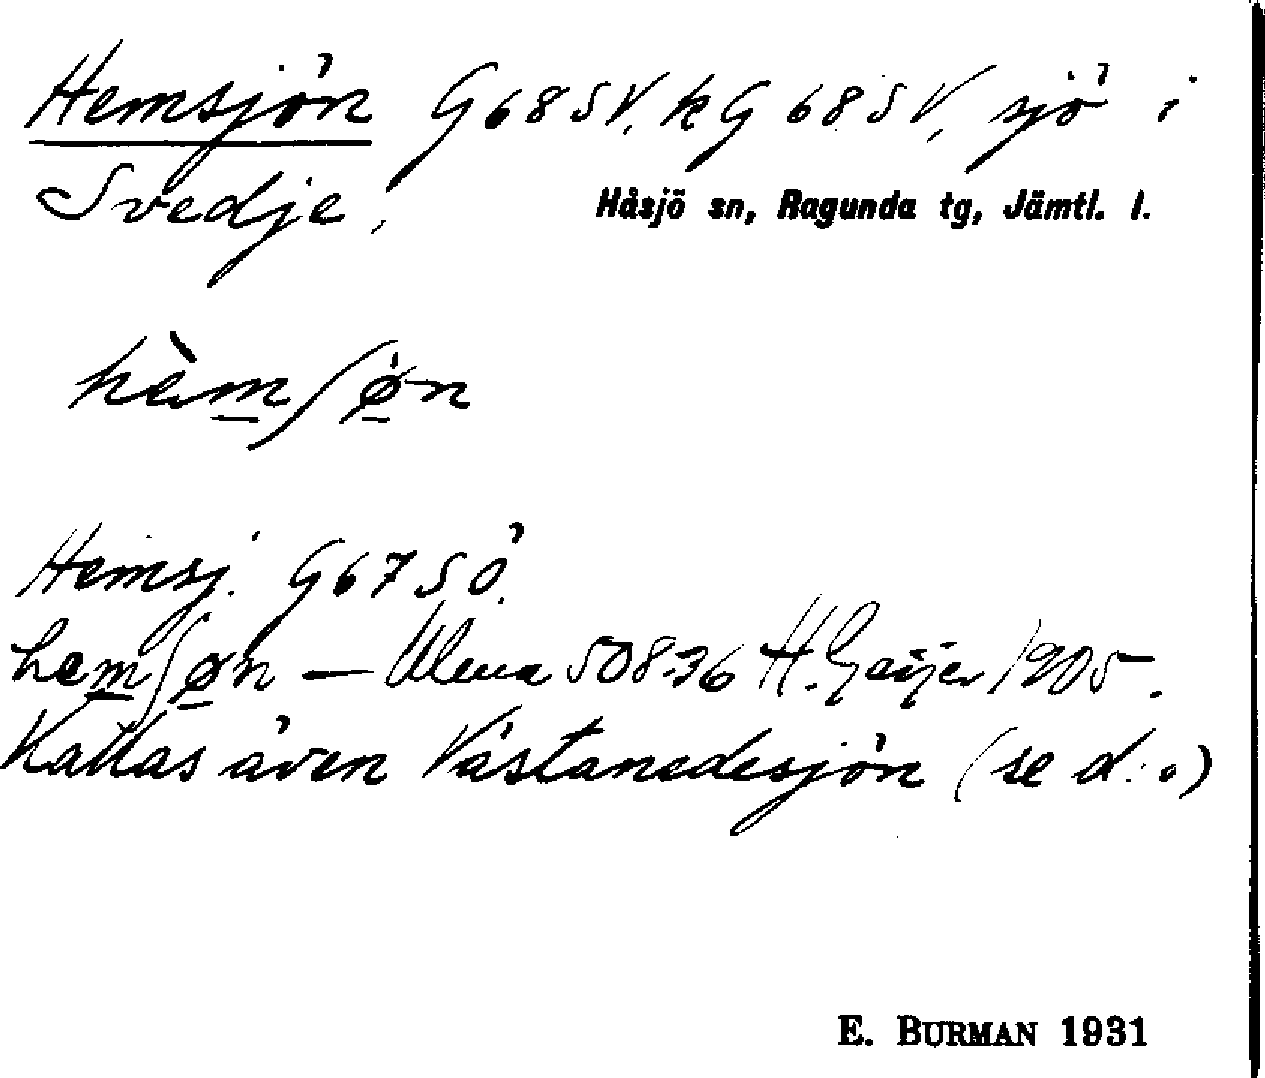 Hemsjön G68SV, kG68SV, sjö i
Svedje, Håsjö sn, Ragunda tg, Jämtl. l.
hèmʃøn
Hemsj. G67SÖ.
hemʃøn — Ulma 508:36 H. Geijer 1905.
Kallas även Västanedesjön (se d. o)
E. BURMAN 1931